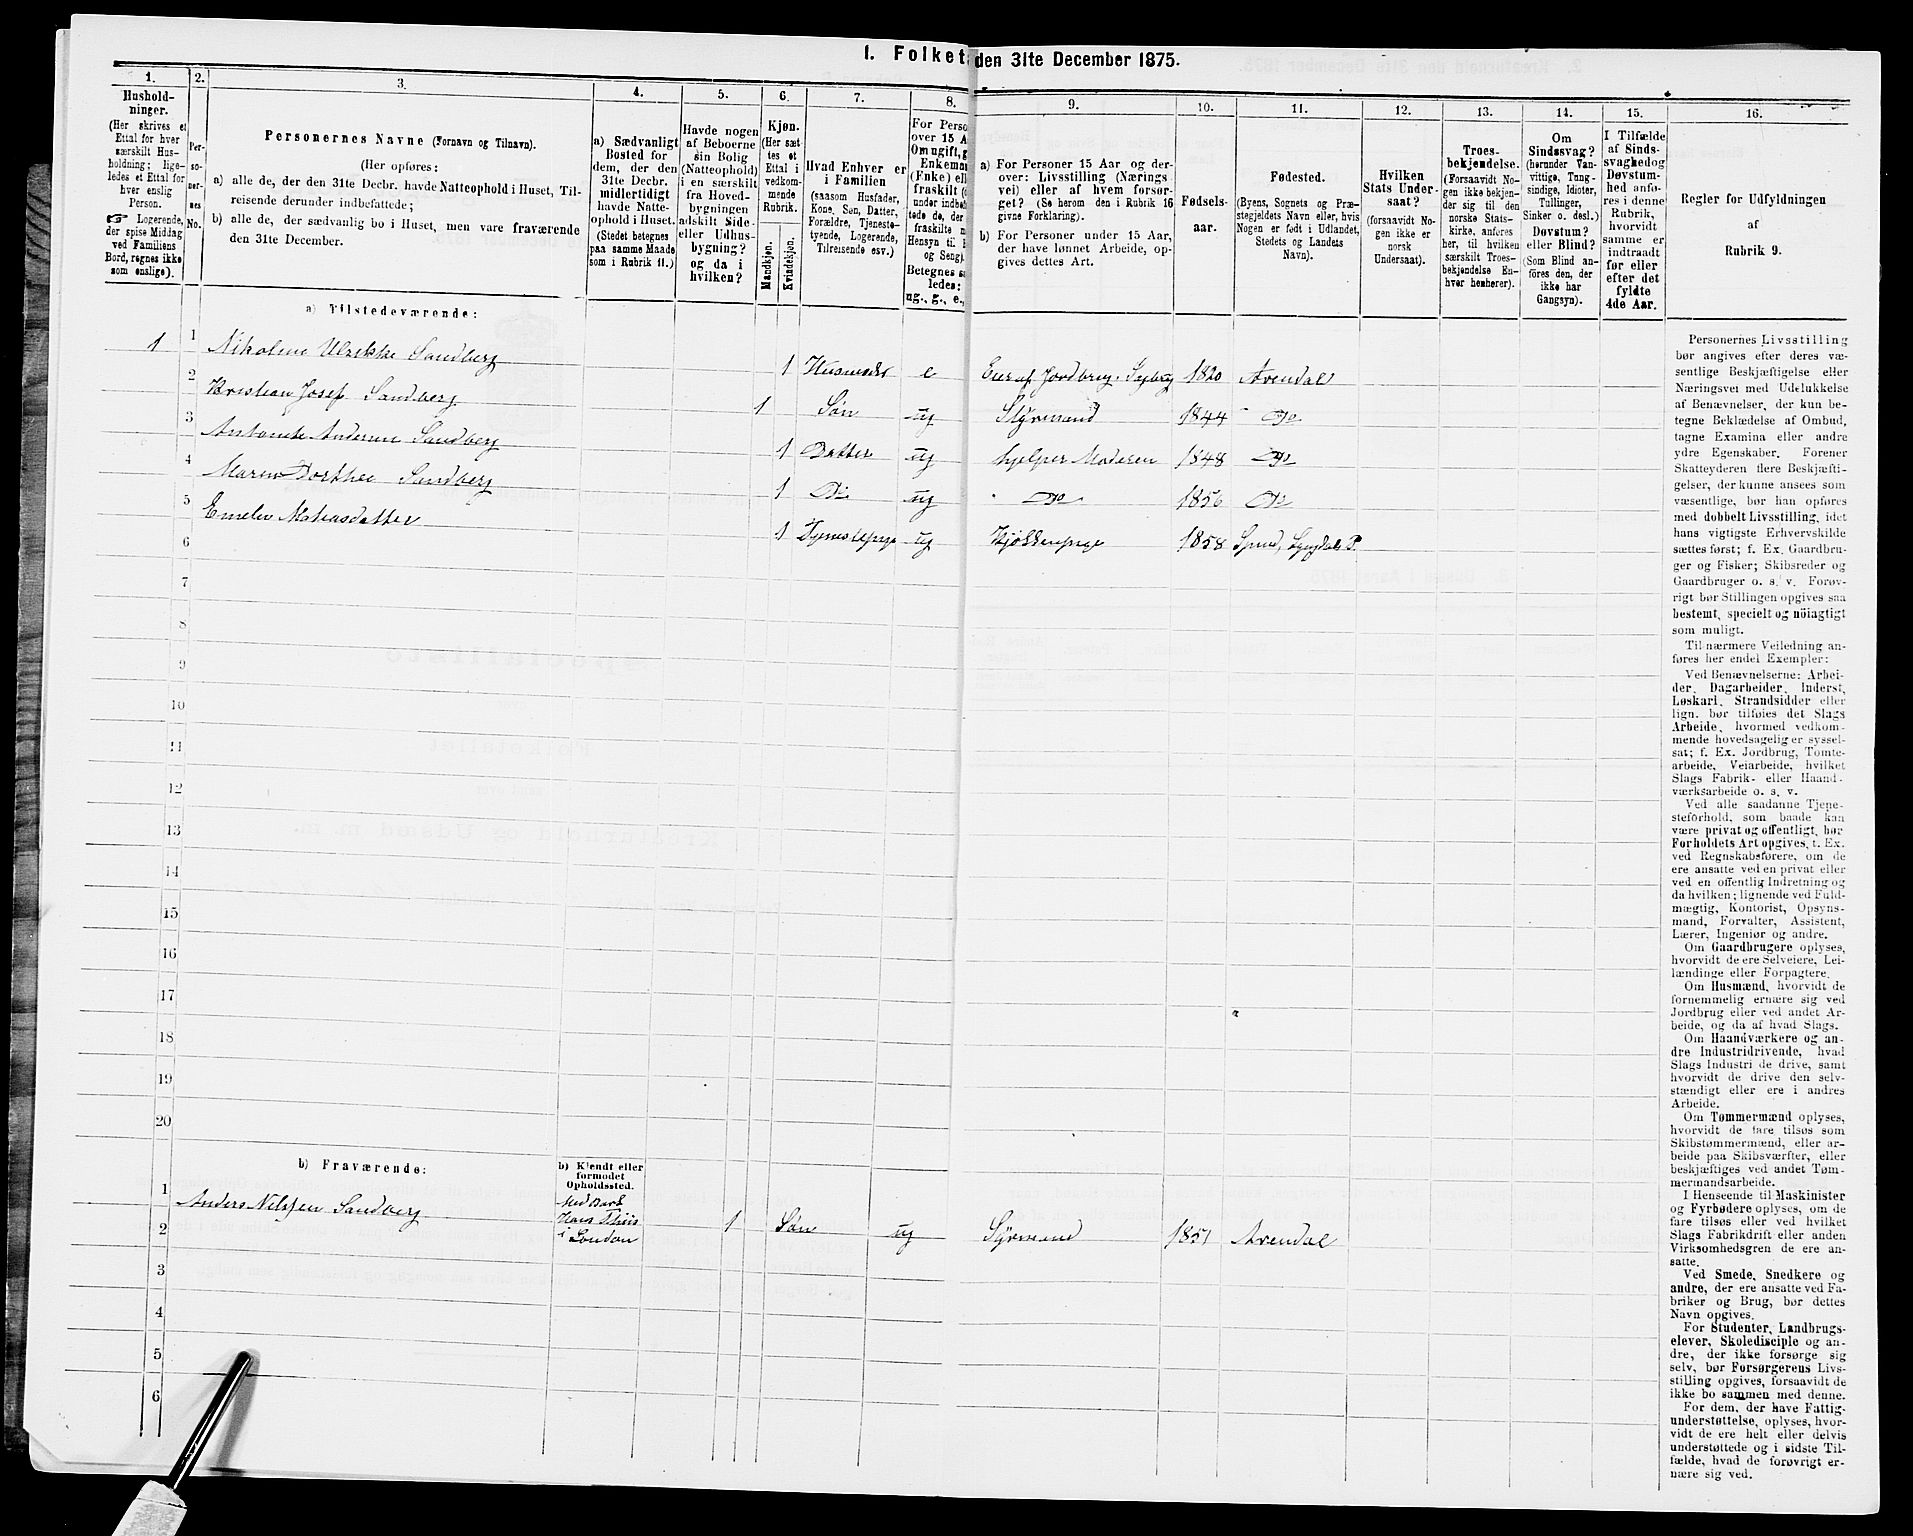 1. Folket den 31te December 1875.
1.
Hushold-
ninger.
(Her skrives et
Ettal for hver
særskilt Hus-
holdning; lige-
ledes et Ettal for
hver enslig
Person.
Logerende,
der spise Middag
ved Familiens
Bord, regnes ikke
som enslige).
2.
Per-
so-
ner-
nes
No.
3.
Personernes Navne (Fornavn og Tilnavn).
(Her opføres:
a) alle de, der den 31te Decbr. havde Natteophold i Huset, Til-
reisende derunder indbefattede;
b) alle de, der sædvanlig bo i Huset, men vare fraværende
den 31te December.
4.
a) Sædvanligt
Bosted for
dem, der den
31te Decbr.
midlertidigt
havde Natte-
ophold i Huset.
(Stedet betegnes
paa samme Maade
som i Rubrik 11.)
5.
Havde nogen
af Beboerne
sin Bolig
(Natteophold)
i en særskilt
fra Hoved-
bygningen
adskilt Side-
eller Udhus-
bygning?
og da i
hvilken?
6.
Kjøn.
(Her sæt-
tes et
Ettal i
vedkom-
mende
Rubrik.
Mandkjøn.
Kvindekjøn.
7.
Hvad Enhver er
i Familien
(saasom Husfader,
Kone, Søn, Datter,
Forældre, Tjeneste-
tyende, Logerende,
Tilreisende osv.)
8.
For Perso
over 15 A
Om ugift, g
Enkema
(Enke) ell
fraskilt (
under indbef
tede de, der
fraskilte
Hensyn til
og Seng).
Betegnes s
ledes:
ug., g., e.,
9.
a) For Personer 15 Aar og der-
over: Livsstilling (Nærings-
vei) eller af hvem forsør-
get? (Se herom den i Rubrik 16
givne Forklaring).
b) For Personer under 15 Aar,
der have lønnet Arbeide, op-
gives dettes Art.
10.
Fødsels-
aar.
11.
Fødested.
(Byens, Sognets og Præ-
stegjeldets Navn eller, hvis
Nogen er født i Udlandet,
Stedets og Landets
Navn).
12.
Hvilken
Stats Under-
saat?
(forsaavidt No-
gen ikke er
norsk
Undersaat).
13.
Troes-
bekjendelse.
(Forsaavidt No-
gen ikke bekjen-
der sig til den
norske Stats-
kirke, anføres
her, til hvilken
særskilt Troes-
bekjendelse En-
hver henhører).
14.
Om
Sindssvag?
(herunder Van-
vittige, Tung-
sindige, Idioter,
Tullinger,
Sinker o. desl.)
Døvstum?
eller Blind?
(Som Blind an-
føres den, der
ikke har
Gangsyn).
15.
I Tilfælde
af Sinds-
svaghed og
Døvstum-
hed anfø-
res i denne
Rubrik,
hvorvidt
samme er
indtraadt
før eller
efter det
fyldte
4de Aar.
16.
Regler for Udfyldningen
af
Rubrik 9.
a) Tilstedeværende:
1 1 Nikoline Ulrikke Sandberg 1 Husmoder e Eier af Jordbrug 1820 Arendal
2 Kristian Josef Sandberg 1 Søn ug Styrmand 1844 Do
3 Antonette Andrine Sandberg 1 Datter ug hjelper Moderen 1848 Do
4 Maren Dorthee Sandberg 1 Do ug Do 1856 Do
5 Emelie Matiasdatter 1 Tjenestepige ug Kjøkkenpige 1858 Lyngdals P.
6
7
8
9
10
11
12
13
14
15
16
17
18
19
20
b) Fraværende:
b) Kjendt eller
formodet
Opholdssted.
1 Anders Nilssen Sandberg Med Bark
Hans Thiis
i London 1 Søn ug Styrmand 1851 Arendal
2
3
4
5
6
Personernes Livsstilling
bør angives efter deres væ-
sentlige Beskjæftigelse eller
Næringsvei med Udelukkelse
af Benævnelser, der kun be-
tegne Beklædelse af Ombud,
tagne Examina eller andre
ydre Egenskaber. Forener
Skatteyderen flere Beskjæfti-
gelser, der kunne ansees som
væsentlige, bør han opføres
med dobbelt Livsstilling, idet
hans vigtigste Erhvervskilde
sættes først; f. Ex. Gaardbru-
ger og Fisker; Skibsreder og
Gaardbruger o. s. v. Forøv-
rigt bør Stillingen opgives saa
bestemt, specielt og nöiagtigt
som muligt.
Til nærmere Veiledning an-
føres her endel Exempler:
Ved Benævnelserne: Arbei-
der, Dagarbeider, Inderst,
Løskarl, Strandsidder eller
lign. bør tilføies det Slags
Arbeide, hvormed vedkom-
mende hovedsagelig er syssel-
sat; f. Ex. Jordbrug, Tomte-
arbeide, Veiarbeide, hvilket
Slags Fabrik- eller Haand-
værksarbeide o. s. v.
Ved alle saadanne Tjene-
steforhold, som baade kan
være privat og offentligt, bør
Forholdets Art opgives, f. Ex.
ved Regnskabsførere, om de
ere ansatte ved en privat eller
ved en offentlig Indretning og
da hvilken; lignende ved Fuld-
mægtig, Kontorist, Opsyns-
mand, Forvalter, Assistent,
Lærer, Ingeniør og andre.
Om Gaardbrugere oplyses,
hvorvidt de ere Selveiere, Lei-
lændinge eller Forpagtere.
Om Husmænd, hvorvidt de
fornemmelig ernære sig ved
Jordbrug eller ved andet Ar-
beide, og da af hvad Slags.
Om Haandværkere og an-
dre Industridrivende, hvad
Slags Industri de drive, samt
hvorvidt de drive den selv-
stændigt eller ere i andres
Arbeide.
Om Tømmermænd oplyses,
hvorvidt de fare tilsøs som
Skibstømmermænd, eller ar-
beide paa Skibsværfter, eller
beskjæftiges ved andet Tøm-
mermandsarbeide.
I Henseende til Maskinister
og Fyrbødere oplyses, om de
fare tilsøs eller ved hvilket
Slags Fabrikdrift eller anden
Virksomhedsgren de ere an-
satte.
Ved Smede, Snedkere og
andre, der ere ansatte ved Fa-
briker og Brug, bør dettes
Navn opgives.
For Studenter, Landbrugs-
elever, Skoledisciple og an-
dre, der ikke forsørge sig
selv, bør Forsørgerens Livs-
stilling opgives, forsaavidt de
ikke bo sammen med denne.
For dem, der have Fattig-
understøttelse, oplyses, hvor-
vidt de ere helt eller delvis
understøttede og i sidste Til-
fælde, hvad de forøvrigt er-
nære sig ved.